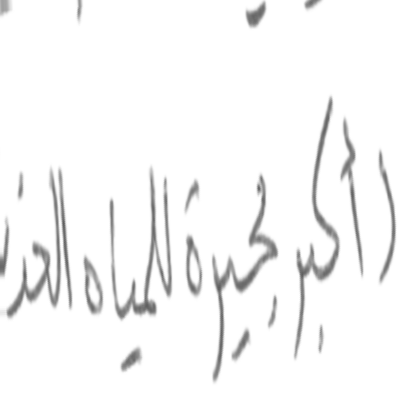 ( أكبر بحيرة للمياه العذ